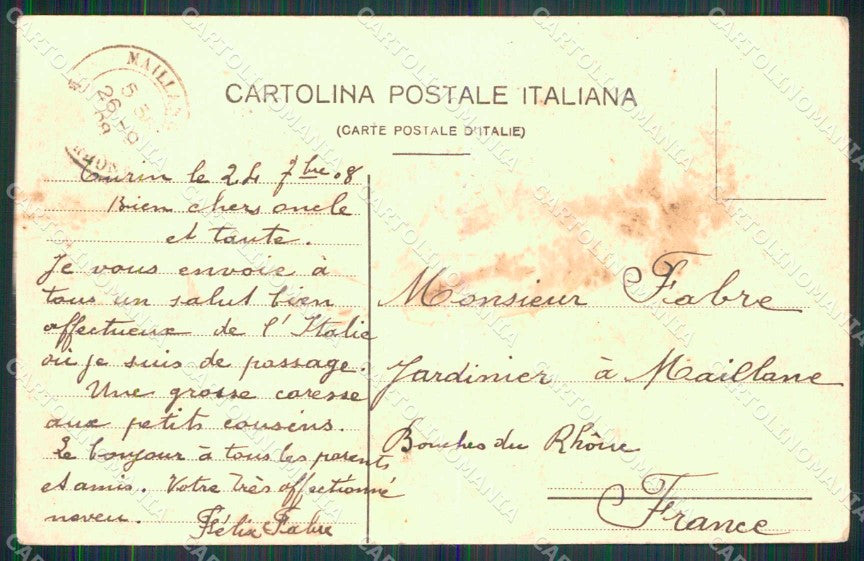 CARTOLINA POSTALE ITALIANA
(CARTE POSTALE D'ITALIE)
MAILLANE
26 -9
09
Turin le 24 7bre 08
Bien chers oncle
et tante.
Je vous envoie à
tous un salut bien
affectueux de l'Italie
où je suis de passage.
Une grosse caresse
aux petits cousins.
Le bonjour à tous les parents
et amis. Votre très affectionné
neveu.
Félix Fabre
Monsieur Fabre
Jardinier à Maillane
Bouches du Rhône
France
CARTOLINOMANIA